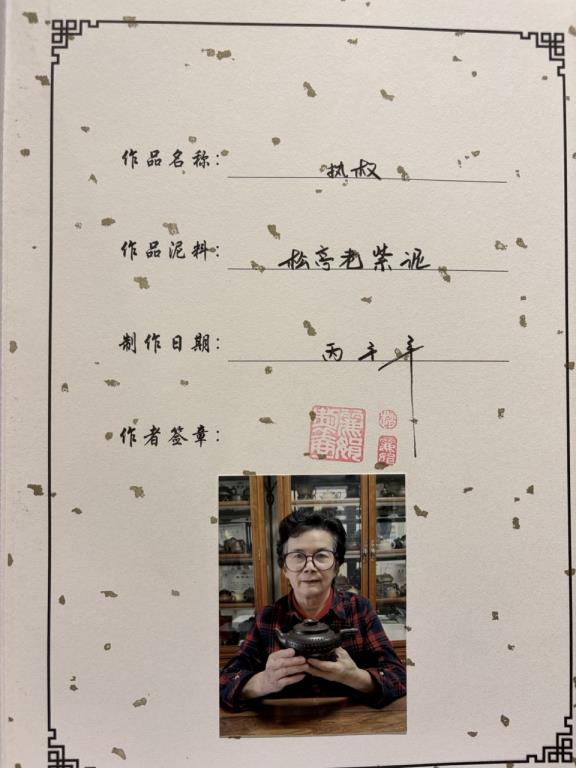 作品名称：
作品泥料：松亭老紫泥
制作日期：丙午年
作者签章：